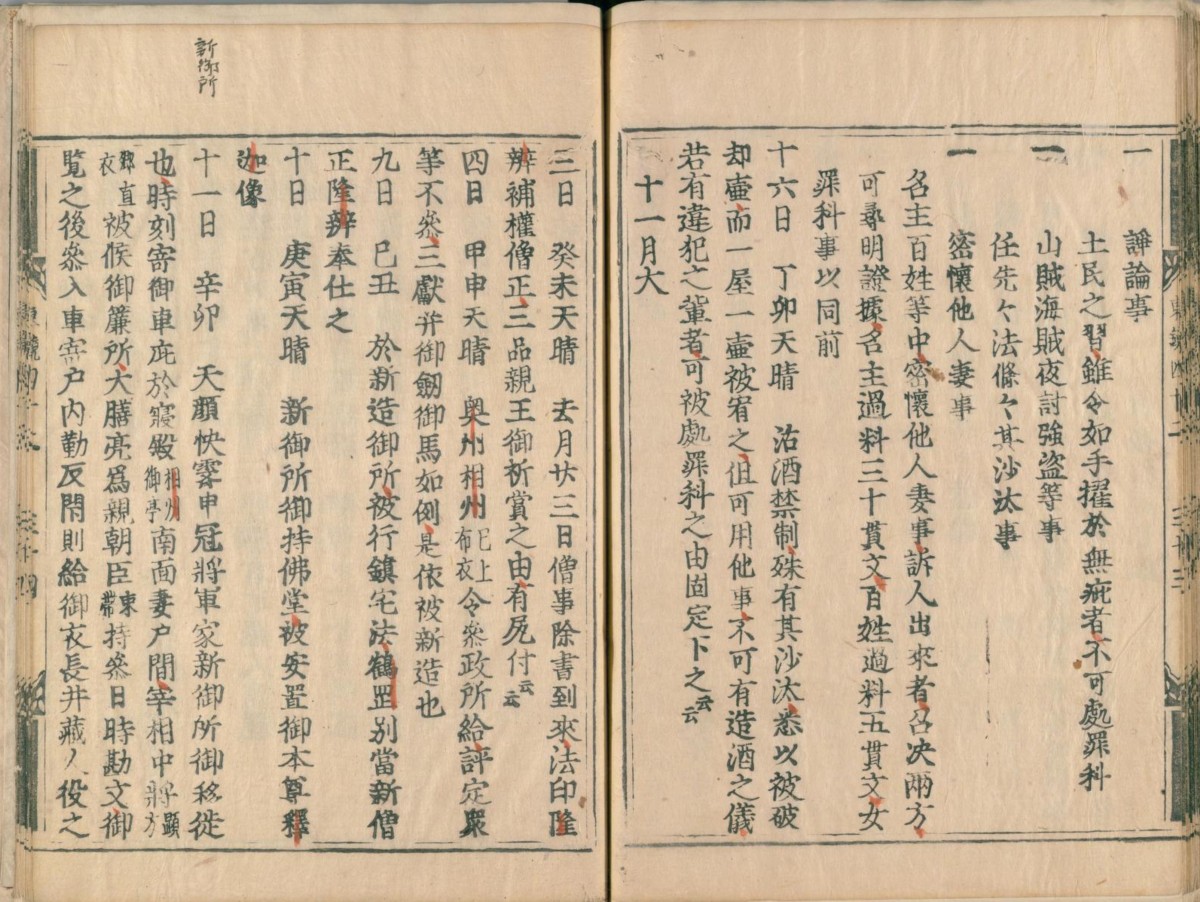 一　諍論事
土民之習雖令如手擢於無疵者不可處罪科
一　山賊海賊夜討強盗等事
任先々法條々其沙汰事
一　密懷他人妻事
名主百姓等中密懷他人妻事訴人出來者召决兩方
可尋明證據名主過料三十貫文百姓過料五貫文女
罪科事以同前
十六日　丁卯天晴　沽酒禁制殊有其沙汰悉以被破
却壷而一屋一壷被宥之但可用他事不可有造酒之儀
若有違犯之輩者可被處罪科之由固定下之云云
十一月大
三日　癸未天晴　去月廿三日僧事除書到來法印隆
辨補權僧正三品親王御祈賞之由有尻付云云
四日　甲申天晴　奥州相州已上布衣令參政所給評定衆
等不參三獻并御劔御馬如例是依被新造也
九日　己丑　於新造御所被行鎭宅法鶴罡別當新僧
正隆辨奉仕之
十日　庚寅天晴　新御所御持佛堂被安置御本尊釋
迦像
十一日　辛卯　天顔快霽申冠將軍家新御所御移徙
也時刻寄御車庇於寢殿相州御亭南面妻户間宰相中將顯方
衣冠直衣被候御簾所大膳亮爲親朝臣束帶持參日時勘文御
覧之後參入車寄户内勤反閇則給御衣長井藏人役之
新御所